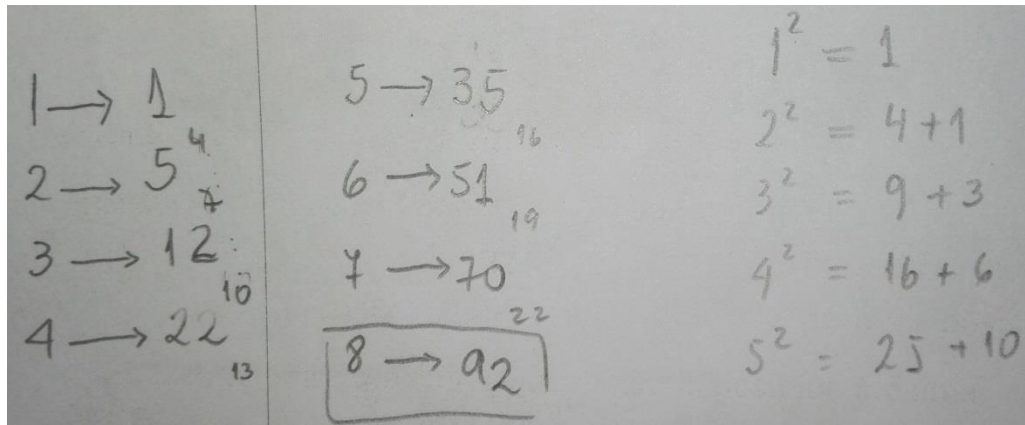 1 → 1
4
2 → 5
7
3 → 12
10
4 → 22
13
5 → 35
16
6 → 51
19
7 → 70
22
8 → 92
1² = 1
2² = 4 + 1
3² = 9 + 3
4² = 16 + 6
5² = 25 + 10